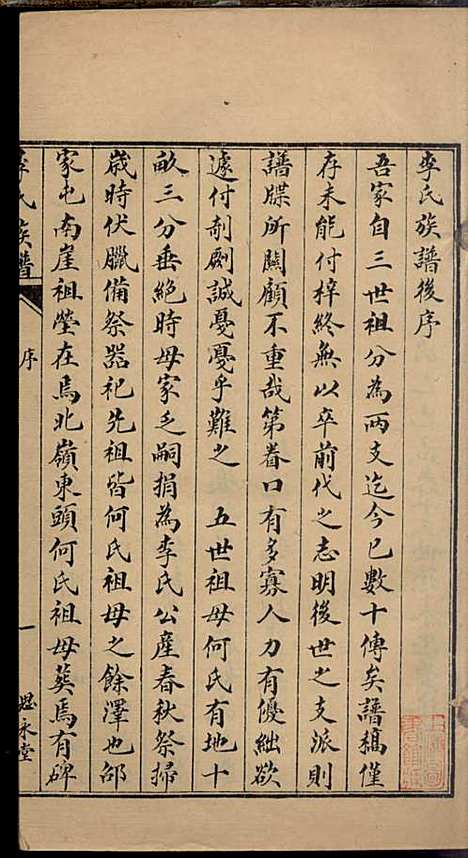 李氏族譜後序
吾家自三世祖分為兩支迄今已數十傳矣譜稿僅
存未能付梓終無以卒前代之志明後世之支派則
譜牒所關顧不重哉第眷口有多寡人力有優絀欲
遽付剞劂誠憂憂乎難之　五世祖母何氏有地十
畝三分垂絕時母家乏嗣捐為李氏公產春秋祭掃
歲時伏臘備祭器祀先祖皆何氏祖母之餘澤也邰
家屯南崖祖塋在焉北嶺東頭何氏祖母葬焉有碑
李氏族譜
序
一
思永堂